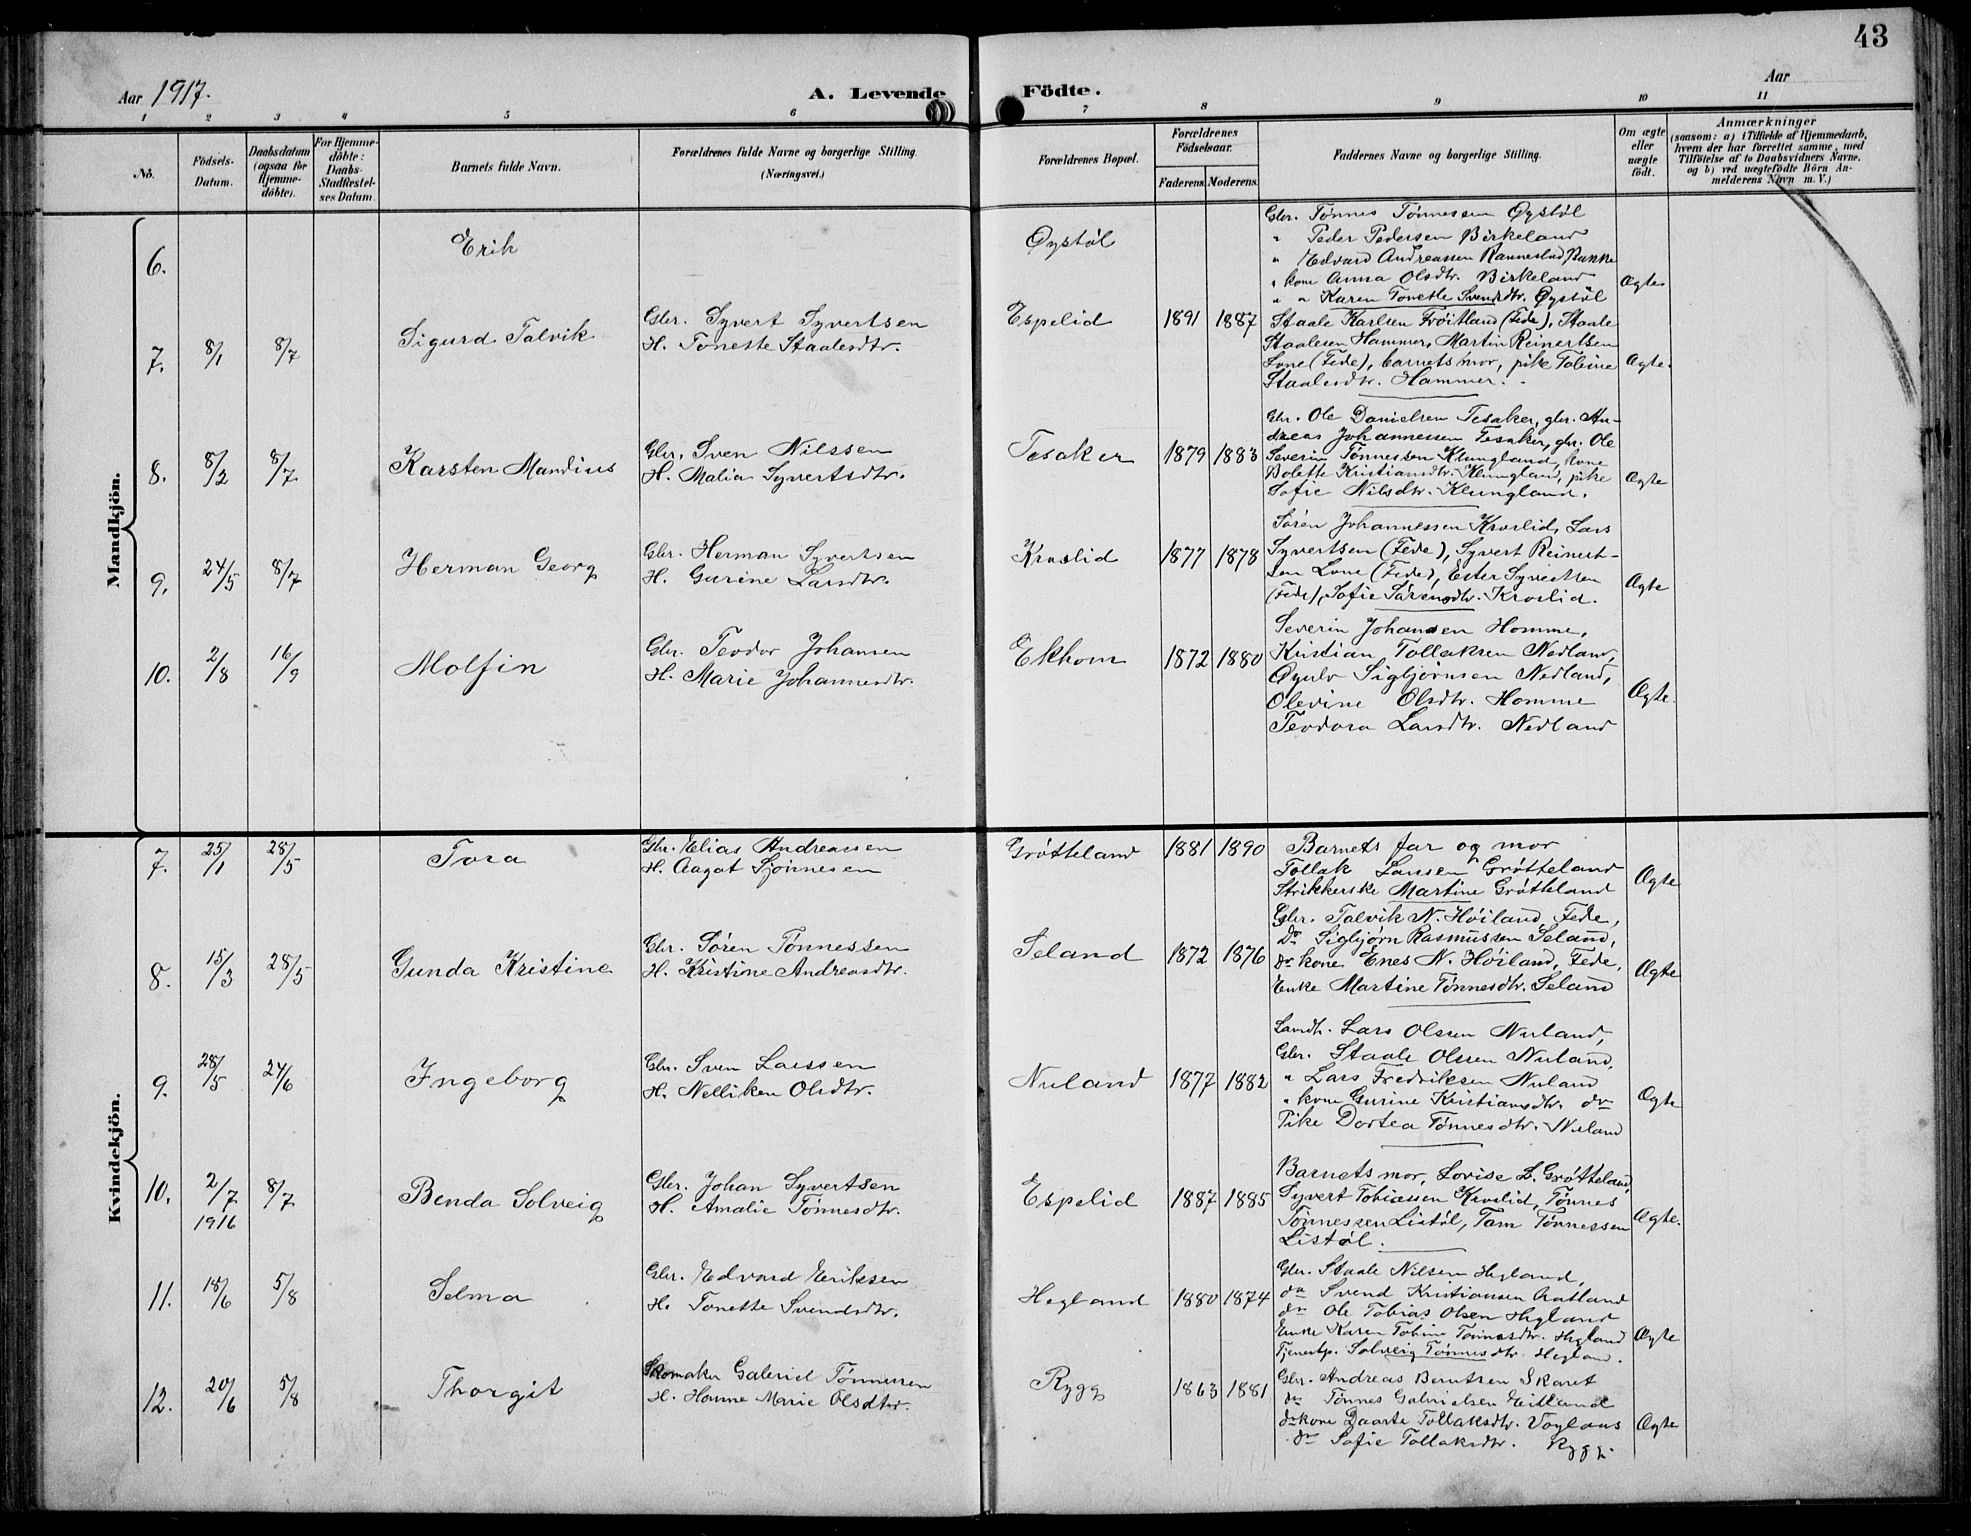 43
Aar 1917.
A. Levende
Födte.
Aar
1 2 3 4 5 6 7 8 9 10 11
No.
Födsels-
Datum.
Daabsdatum
(ogsaa for
Hjemme-
döbte).
For Hjemme-
döbte:
Daabs-
Stadfæstel-
ses Datum.
Barnets fulde Navn.
Forældrenes fulde Navne og borgerlige Stilling.
(Næringsvei.)
Forældrenes Bopæl.
Forældrenes
Födselsaar.
Faderens. Moderens.
Faddernes Navne og borgerlige Stilling.
Om ægte
eller
uægte
födt.
Anmærkninger
(saasom: a) i Tilfælde af Hjemmedaab,
hvem der har forrettet samme, med
Tilföielse af to Daabsvidners Navne,
og b) ved uægtefödte Börn An-
melderens Navn m. V.)
Mandkjön.
6. Erik
Øystöl
Gbr. Tønnes Tönnessen Øystöl
" Peder Pedersen Birkeland
" Edvard Andreassen Rannestad, Bakke
" kone Anna Olsdtr. Birkeland
" " Karen Tonette Svendsdtr. Øystöl
Ægte
7. 8/1 8/7
Sigurd Talvik
Gbr. Syvert Syvertsen
H. Tonette Staalesdtr.
Espelid 1891 1887
Staale Karlsen Fröitland (Fede), Staale
Staalesen Hammer, Martin Reinertsen
Lone (Fede), barnets mor, pike Tobine
Staalesdtr. Hammer.
Ægte.
8. 8/2 8/7
Karsten Mandius
Gbr. Sven Nilssen
H. Malia Syvertsdtr.
Tesaker 1879 1883
Gbr. Ole Danielsen Tesaker, gbr. An-
dreas Johannessen Tesaker, gbr. Ole
Severin Tønnessen Klungland, kone
Bolette Kristiansdtr. Klungland, pike
Sofie Nilsdtr. Klungland.
Ægte
9. 24/5 8/7
Herman Georg
Gbr. Herman Syvertsen
H. Gurine Larsdtr.
Kroslid 1877 1878
Søren Johannessen Kroslid, Lars
Syvertsen (Fede), Syvert Reinert-
sen Lone (Fede), Ester Syvertsen
(Fede), Sofie Sörensdtr. Kroslid.
Ægte
10. 2/8 16/9
Molfin
Gbr. Teodor Johansen
H. Marie Johannesdtr.
Ekhom 1872 1880
Severin Johansen Homme,
Kristian Tollaksen Nedland,
Øyulv Sigbjörnsen Nedland,
Olevine Olsdtr. Homme
Teodora Larsdtr. Nedland
Ægte.
Kvindekjön.
7. 25/1 28/5
Tora
Gbr. Elias Andreassen
H. Aagot Sjönnesen
Grötteland 1881 1890
Barnets far og mor
Tollak Larsen Grötteland
Strikkerske Martine Grötteland
Ægte
8. 15/3 28/5
Gunda Kristine
Gbr. Søren Tønnessen
H. Kristine Andreasdtr.
Seland 1872 1876
Gbr. Talvik N. Höiland, Fede,
do Sigbjørn Rasmussen Seland,
do kone Enes N. Höiland, Fede,
Enke Martine Tønnesdtr. Seland
Ægte
9. 28/5 24/6
Ingeborg
Gbr. Sven Larssen
H. Nelliken Olsdtr.
Nuland 1877 1882
Landh. Lars Olssen Nuland,
Gbr. Staale Olssen Nuland,
" Lars Fredriksen Nuland
" kone Gurine Kristiansdtr. do
Pike Dortea Tønnesdtr. Nuland
Ægte
10. 2/7 8/7
1916
Benda Solveig
Gbr. Johan Syvertsen
H. Amalie Tønnesdtr.
Espelid 1887 1885
Barnets mor, Lovise L. Grötteland,
Syvert Tobiassen Kroslid, Tønnes
Tønnessen Listöl, Tam Tønnessen
Listöl.
Ægte.
11. 18/6 5/8
Selma
Gbr. Edvard Eriksen
H. Tonette Svendsdtr.
Hegland 1880 1874
Gbr. Staale Nilsen Hegland,
do Svend Kristiansen
do Ole Tobias Olsen Hegland
Enke Karen Tobine Tønnesdtr. Hegland
Tjenestp. Solveig Tønnesdtr. Hegland.
Ægte
12. 20/6 5/8
Thorgit
Skomaker Gabriel Tønnesen
H. Hanne Marie Olsdtr.
Rygg 1863 1881
Gbr. Andreas Berntsen Skaret
do Tønnes Gabrielsen Eitland
do kone Daarte Tollaksdtr. Voglaus
do Sofie Tollaksdtr. Rygg.
Ægte